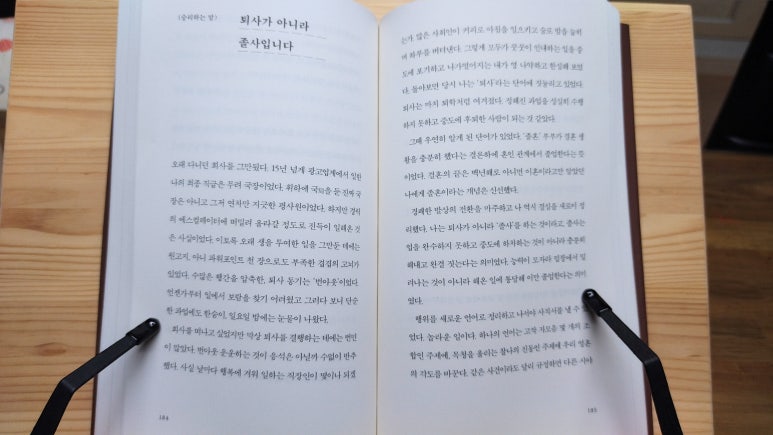 (승리하는 말)
퇴사가 아니라
졸사입니다
오래 다니던 회사를 그만뒀다. 15년 넘게 광고업계에서 일한
나의 최종 직급은 무려 국장이었다. 위하에 국 을 둔 진짜 국
장은 아니고 그저 연차만 지긋한 평사원이었다. 하지만 경력
의 에스컬레이터에 떠밀려 올라갈 정도로 진득이 일해온 것
은 사실이었다. 이토록 오래 생을 투여한 일을 그만둔 데에는
원고지, 아니 파워포인트 천 장으로도 부족한 겹겹의 고뇌가
있었다. 수많은 행간을 압축한, 퇴사 동기는 '번아웃'이었다.
언젠가부터 일에서 보람을 찾기 어려웠고 그러다 보니 단순
한 과업에도 한숨이, 일요일 밤에는 눈물이 나왔다.
회사를 떠나고 싶었지만 막상 퇴사를 결행하는 데에는 번민
이 많았다. 번아웃 운운하는 것이 응석은 아닐까 수없이 반추
했다. 사실 날마다 행복에 겨워 일하는 직장인이 몇이나 되겠
184
는가. 많은 사회인이 커피로 아침을 일으키고 술로 밤을 눕히
며 하루를 버텨낸다. 그렇게 모두가 꿋꿋이 인내하는 일을 중
도에 포기하고 나가떨어지는 내가 영 나약하고 한심해 보였
다. 돌아보면 당시 나는 '퇴사'라는 단어에 짓눌리고 있었다.
퇴사는 마치 퇴학처럼 여겨졌다. 정해진 과업을 성실히 수행
하지 못하고 중도에 후퇴한 사람이 되는 것 같았다.
그때 우연히 알게 된 단어가 있었다. '졸혼.' 부부가 결혼 생
활을 충분히 했다는 결론하에 혼인 관계에서 졸업한다는 뜻
이었다. 결혼의 끝은 백년해로 아니면 이혼이라고만 알았던
나에게 졸혼이라는 개념은 신선했다.
경쾌한 발상의 전환을 마주하고 나 역시 결심을 새로이 정
리했다. 나는 퇴사가 아니라 '졸사'를 하는 것이라고. 졸사는
업을 완수하지 못하고 중도에 하차하는 것이 아니라 충분히
해내고 완결 짓는다는 의미였다. 능력이 모자라 입장에서 밀
려나는 것이 아니라 해온 일에 통달해 이만 졸업한다는 의미
였다.
행위를 새로운 언어로 정리하고 나서야 사직서를 낼 수 있
었다. 놀라운 일이다. 하나의 언어는 고작 자모음 몇 개의 조
합인 주제에, 목청을 울리는 찰나의 진동인 주제에 우리 영혼
의 각도를 바꾼다. 같은 사건이라도 달리 규정하면 다른 시야
185